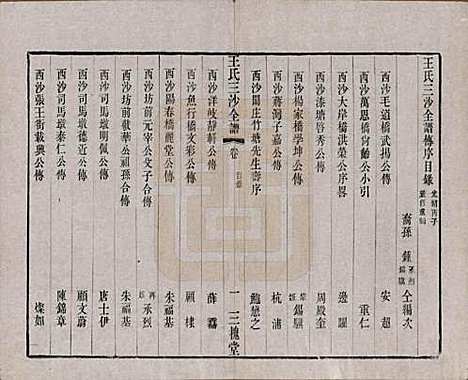 王氏三沙全譜傳序目錄
裔孫 鍾 仝編次
西沙王道橋武揚公傳 安超
西沙萬恩橋耆齡公小引 重仁
西沙大岸橋洪榮公序畧 邊躍
西沙漆塘啓秀公傳 周殿奎
西沙楊家橋學坤公傳 錫驥
西沙蔣灣子嘉公傳 杭浦
西沙閭庄竹塘先生壽序 鮑懋之
王氏三沙全譜 卷 目錄 一 三槐堂
西沙洋岐靜軒公傳 薛靄
西沙魚行橋文彩公傳 顧棣
西沙陽春橋麗堂公傳 朱福基
西沙坊前元宰公文子合傳 承烈
西沙坊前載華公祖孫合傳 朱福基
西沙司馬墩明佩公傳 唐士伊
西沙司馬墩德近公傳 顧文蔚
西沙司馬墩泰宇公傳 陳錦章
西沙張王衖載興公傳 燦如